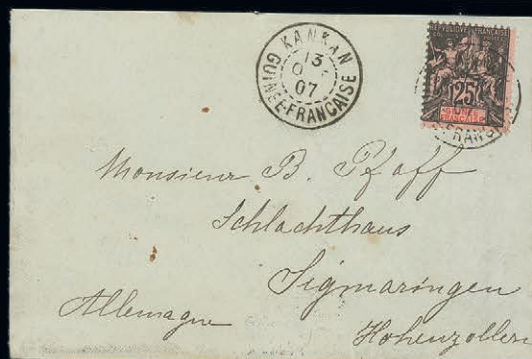 KANKAN
13
07
GUINÉE-FRANÇAISE
RÉPUBLIQUE FRANÇAISE
25
Monsieur B. Pfaff
Schlachthaus
Sigmaringen
Allemagne
Hohenzollern